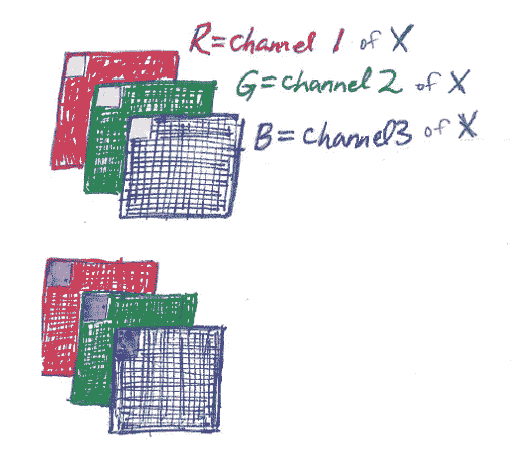 R=channel 1 of X
G=channel 2 of X
B=channel3 of X